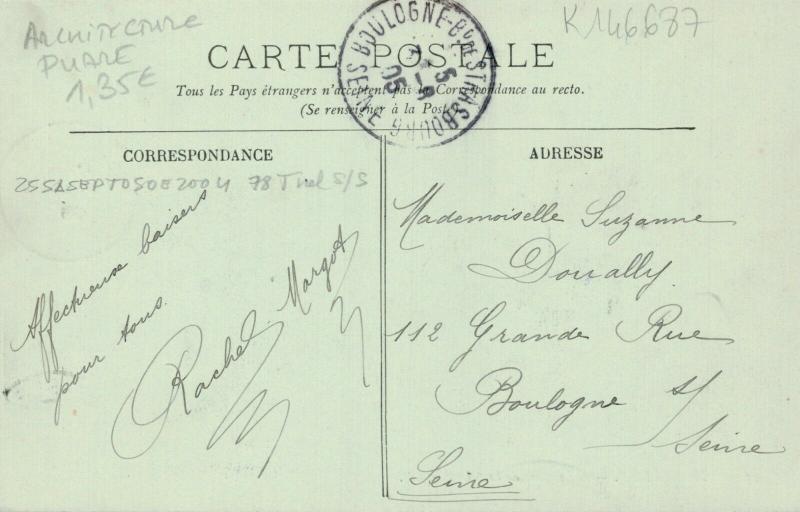 ARCHITECTURE
PHARE
1,35€
K146687
CARTE POSTALE
Tous les Pays étrangers n'acceptent pas la Correspondance au recto.
(Se renseigner à la Poste)
BOULOGNE-Bd DE STRASBOURG
SEINE
CORRESPONDANCE
Affectueux baisers
pour tous.
Rachel. Margot
ADRESSE
Mademoiselle Suzanne
Doually.
112 Grande Rue
Boulogne s/
Seine
Seine